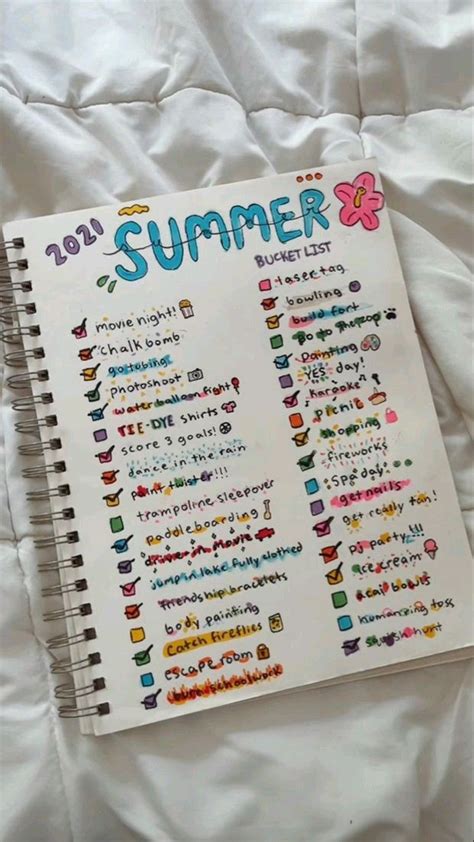 2021
SUMMER
BUCKET LIST
movie night!
chalk bomb
go tubing
photoshoot
water balloon fight
TIE-DYE shirts
score 3 goals!
dance in the rain
paint twister!!!
trampoline sleepover
paddle boarding
drive in movie
jump in lake fully clothed
friendship bracelets
body painting
Catch fireflies
escape room
burn schoolwork
laser tag
bowling
build fort
Go to the
painting
YES day!
karaoke
picnic
shopping
fireworks
spa day
get nails
get really tan!
DJ party!!!
ice cream
acai bowls
humaning toss
hunt